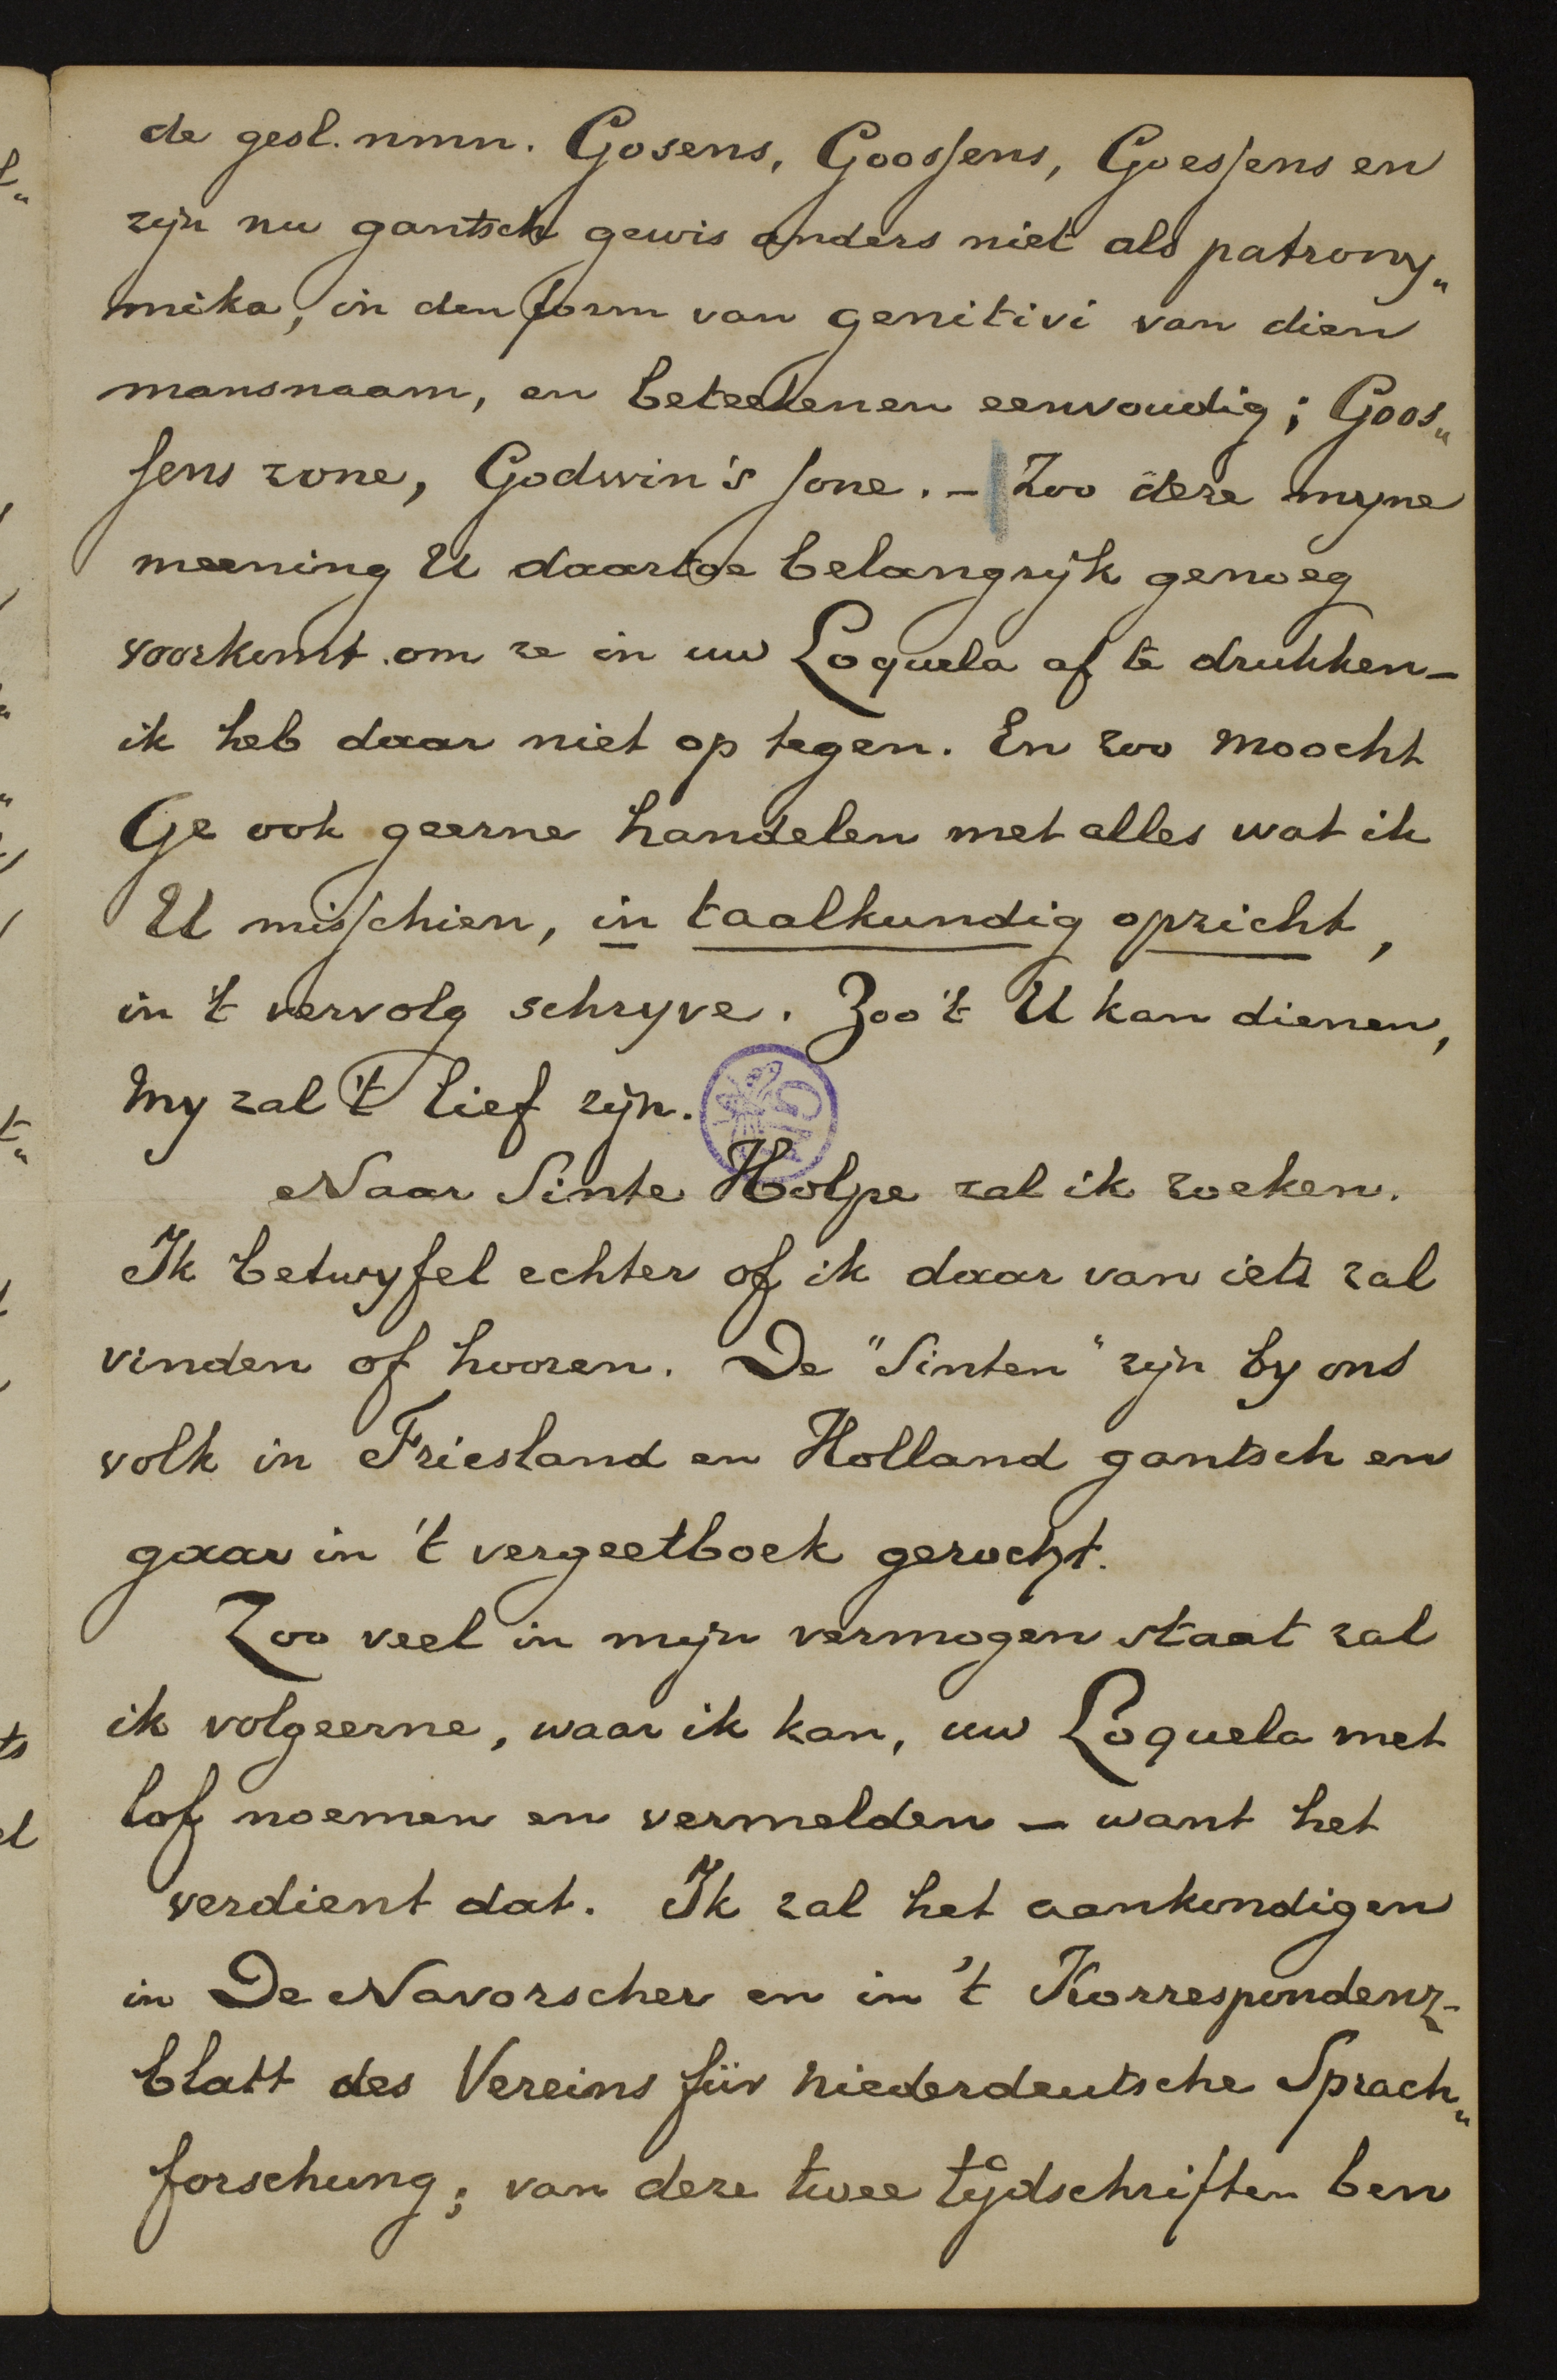 de gesl. nmn. Gosens, Goossens, Goessens en
zijn nu gantsch gewis anders niet als patrony„
mika, in den form van genitivi van dien
mansnaam, en beteekenen eenvoudig; Goos„
sens zone, Godwin's sone. – Zoo deze myne
meening U daartoe belangrijk genoeg
voorkomt om ze in uw Loquela af te drukken –
ik heb daar niet op tegen. En zoo moocht
Ge ook geerne handelen met alles wat ik
U misschien, in taalkundig opzicht,
in 't vervolg schryve. Zoo 't U kan dienen,
my zal 't lief zijn.
Naar Sinte Holpe zal ik zoeken.
Ik betwyfel echter of ik daar van iets zal
vinden of hooren. De "Sinten" zijn by ons
volk in Friesland en Holland gantsch en
gaar in 't vergeetboek gerocht.
Zoo veel in mijn vermogen staat zal
ik volgeerne, waar ik kan, uw Loquela met
lof noemen en vermelden – want het
verdient dat. Ik zal het aenkondigen
in De Navorscher en in 't Korrespondenz-
blatt des Vereins für niederdeutsche Sprach„
forschung; van deze twee tijdschriften ben